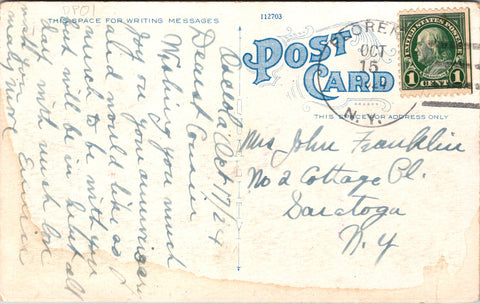 DP01
THIS SPACE FOR WRITING MESSAGES
112703
POST
CARD
THIS SPACE FOR ADDRESS ONLY
OCT
N.Y.
UNITED STATES POSTAGE
1 CENT 1
Oct 17/24
Dearest Cousin
Wishing you much
joy on your anniversary
and would like so
much to be with you
but will be in
but with much love
Mrs John Franklin
No 2 Cottage Pl.
Saratoga
N.Y